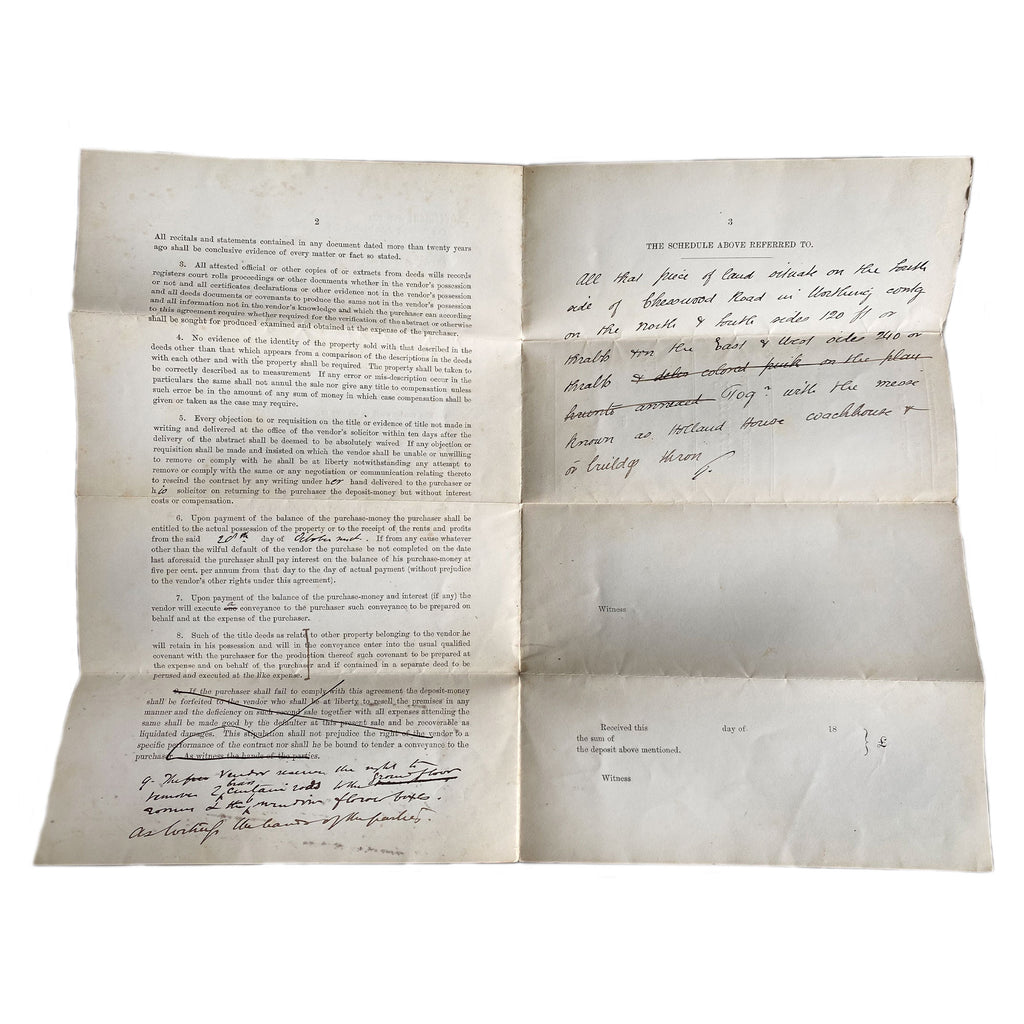 2
All recitals and statements contained in any document dated more than twenty years
ago shall be conclusive evidence of every matter or fact so stated.
3. All attested official or other copies of or extracts from deeds wills records
registers court rolls proceedings or other documents whether in the vendor's possession
or not and all certificates declarations or other evidence not in the vendor's possession
and all deeds documents or covenants to produce the same not in the vendor's possession
and all information not in the vendor's knowledge and which the purchaser can according
to this agreement require whether required for the verification of the abstract or otherwise
shall be sought for produced examined and obtained at the expense of the purchaser.
4. No evidence of the identity of the property sold with that described in the
deeds other than that which appears from a comparison of the descriptions in the deeds
with each other and with the property shall be required. The property shall be taken to
be correctly described as to measurement. If any error or mis-description occur in the
particulars the same shall not annul the sale nor give any title to compensation unless
such error be in the amount of any sum of money in which case compensation shall be
given or taken as the case may require.
5. Every objection to or requisition on the title or evidence of title not made in
writing and delivered at the office of the vendor's solicitor within ten days after the
delivery of the abstract shall be deemed to be absolutely waived. If any objection or
requisition shall be made and insisted on which the vendor shall be unable or unwilling
to remove or comply with he shall be at liberty notwithstanding any attempt to
remove or comply with the same or any negotiation or communication relating thereto
to rescind the contract by any writing under her hand delivered to the purchaser or
his solicitor on returning to the purchaser the deposit-money but without interest
costs or compensation.
6. Upon payment of the balance of the purchase-money the purchaser shall be
entitled to the actual possession of the property or to the receipt of the rents and profits
from the said 20th day of October next. If from any cause whatever
other than the wilful default of the vendor the purchase be not completed on the date
last aforesaid the purchaser shall pay interest on the balance of his purchase-money at
five per cent. per annum from that day to the day of actual payment (without prejudice
to the vendor's other rights under this agreement).
7. Upon payment of the balance of the purchase-money and interest (if any) the
vendor will execute a conveyance to the purchaser such conveyance to be prepared on
behalf and at the expense of the purchaser.
8. Such of the title deeds as relate to other property belonging to the vendor he
will retain in his possession and will in the conveyance enter into the usual qualified
covenant with the purchaser for the production thereof such covenant to be prepared at
the expense and on behalf of the purchaser and if contained in a separate deed to be
perused and executed at the like expense.
9. If the purchaser shall fail to comply with this agreement the deposit-money
shall be forfeited to the vendor who shall be at liberty to resell the premises in any
manner and the deficiency on such second sale together with all expenses attending the
same shall be made good by the defaulter at this present sale and be recoverable as
liquidated damages. This stipulation shall not prejudice the right of the vendor to a
specific performance of the contract nor shall he be bound to tender a conveyance to the
purchaser. As witness the hands of the parties.
9. The Vendor reserves the right to
remove 2 brass curtain rods the ground floor
rooms & the window flower boxes.
As witness the hands of the parties.
3
THE SCHEDULE ABOVE REFERRED TO.
All that piece of land situate on the South
side of Chesswood Road in Worthing contg
on the North & South sides 120 ft or
thrabts & on the East & West sides 240 or
thrabts & delin colored pink on the plan
hereunto annexed Tog.r with the messe
known as Holland House coachhouse &
or buildgs thron
Witness
Received this day of 18
the sum of £
the deposit above mentioned.
Witness